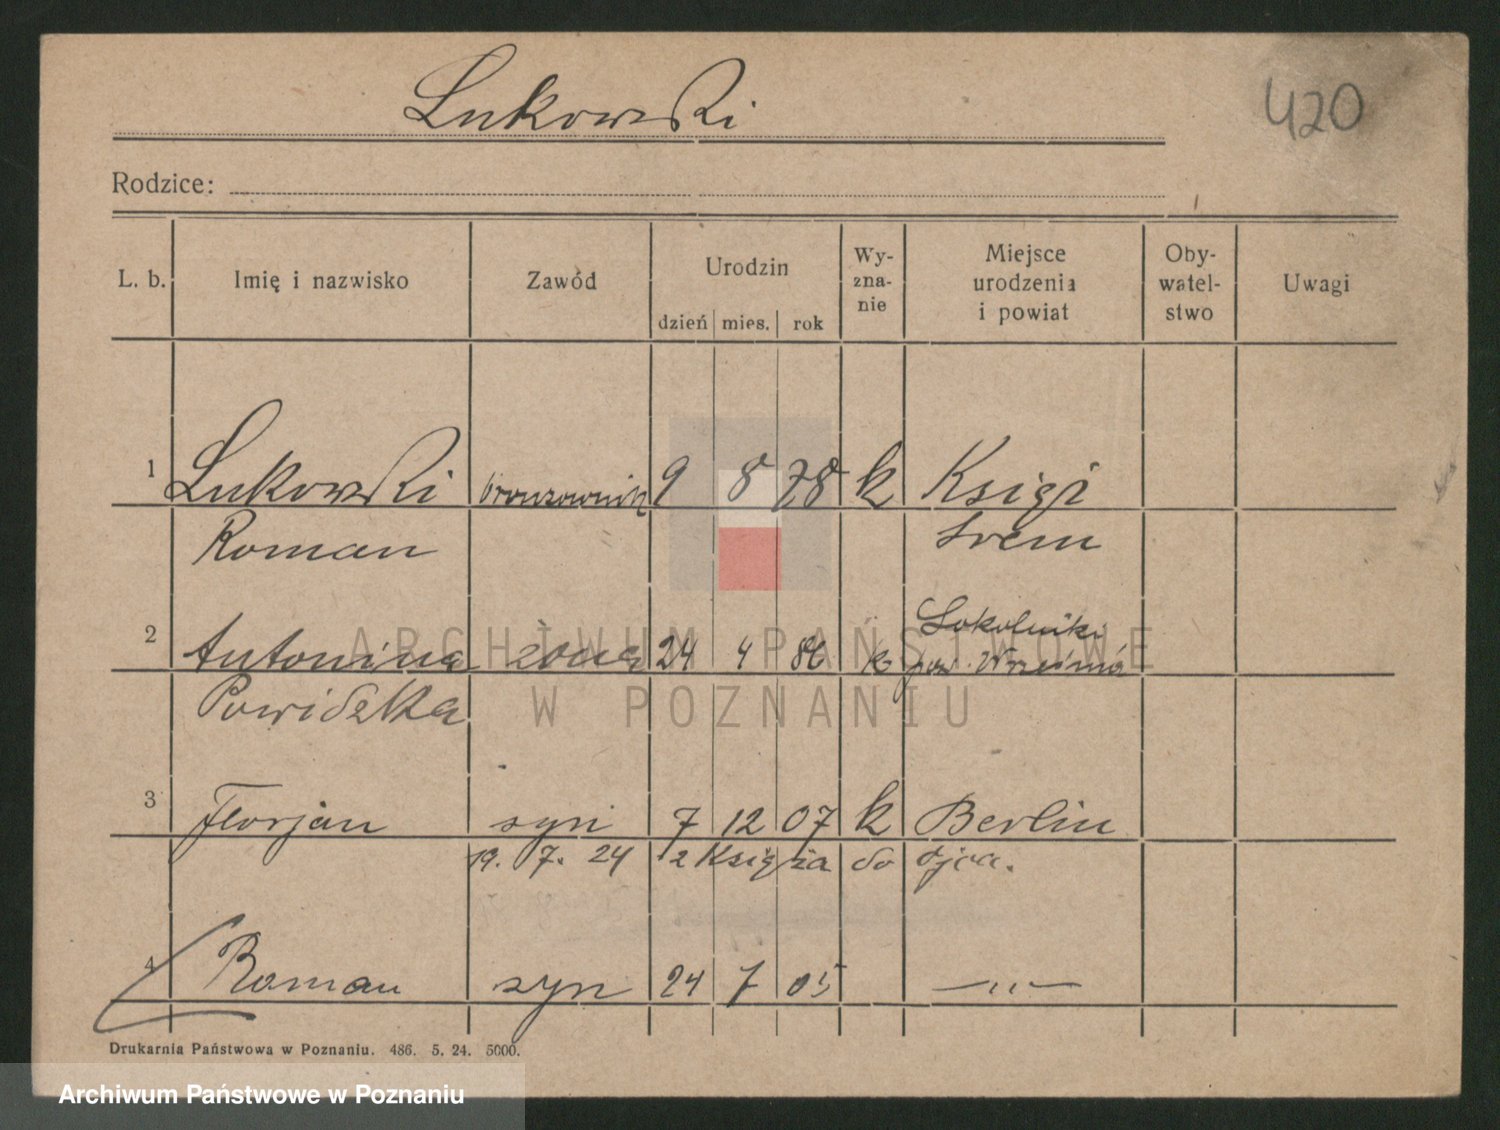 Lukowski
420
Rodzice:
L. b. Imię i nazwisko Zawód Urodzin dzień mies. rok Wy-zna-nie Miejsce urodzenia i powiat Oby-watel-stwo Uwagi
1 Lukowski bronzownik 9 8 78 k Książ
Roman Śrem
Sokolniki
2 Antonina żona 24 4 86 k pow. Września
Powidzka
3 Florjan syn 7 12 07 k Berlin
19. 7. 24 z Książa do ojca.
4 Roman syn 24 7 05 — „ —
Drukarnia Państwowa w Poznaniu. 486. 5. 24. 5000.
ARCHIWUM PAŃSTWOWE
W POZNANIU
Archiwum Państwowe w Poznaniu